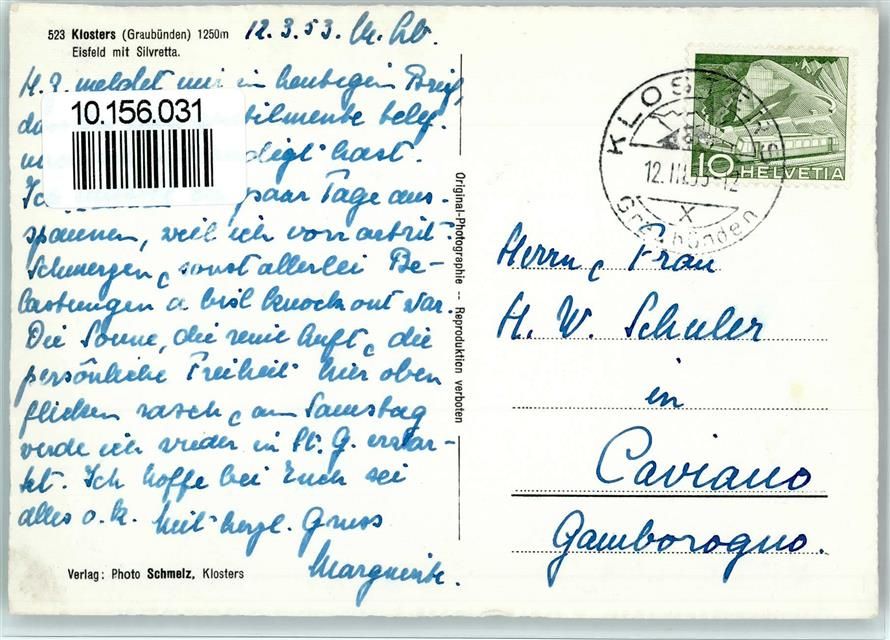 523 Klosters (Graubünden) 1250m
Eisfeld mit Silvretta.
12.3.53. M. Lb.
H. Z. meldet mir in heutigem Brief,
10.156.031
hast.
Ich paar Tage aus-
spannen, weil ich von arbrit.
Schmerzen & sonst allerlei Be-
lastungen a bisl knock out war.
Die Sonne, die reine Luft & die
persönliche Freiheit hier oben
flicken rasch & am Samstag
werde ich wieder in St. G. erstar-
kt. Ich hoffe bei Euch sei
alles o.k. Mit herzl. Gruss
Marguerite.
Verlag: Photo Schmelz, Klosters
Original-Photographie -- Reproduktion verboten
KLOSTERS
12.III.53-12
X
Graubünden
10 HELVETIA
Herrn & Frau
H. W. Schuler
in
Caviano
Gamborogno.